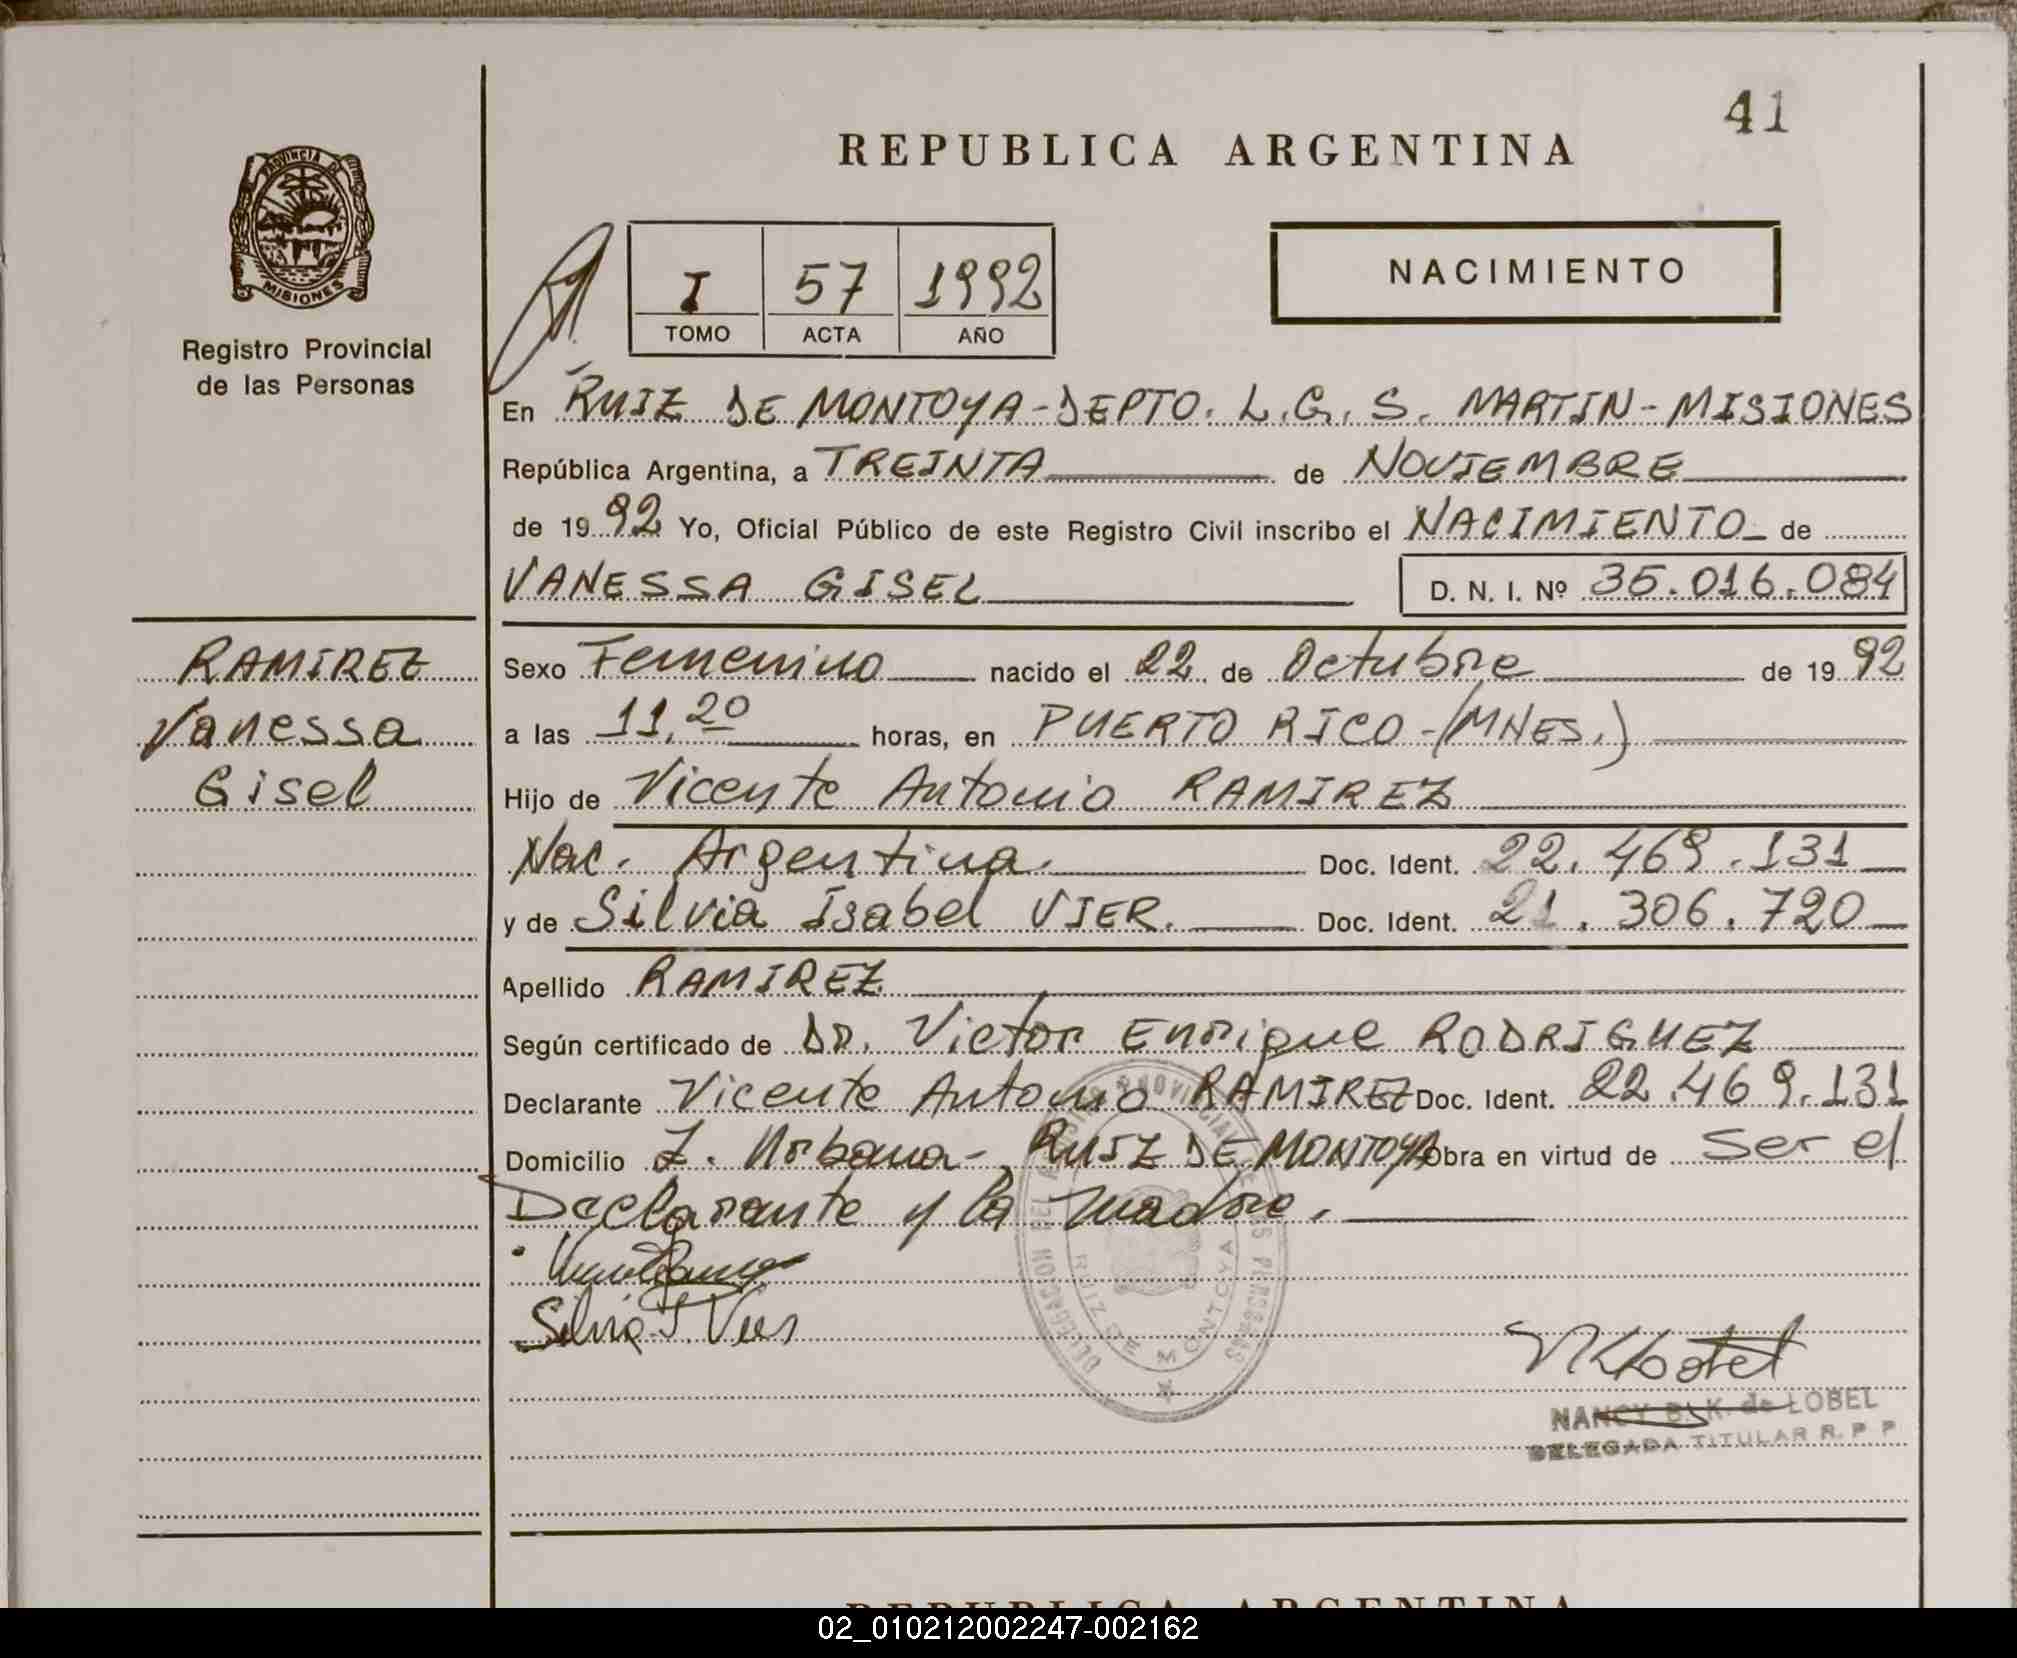 41
REPUBLICA ARGENTINA
PROVINCIA DE
MISIONES
Registro Provincial
de las Personas
I 57 1992
TOMO ACTA AÑO
NACIMIENTO
En RUIZ DE MONTOYA-DEPTO. L.G.S. MARTIN-MISIONES
República Argentina, a TREINTA de NOVIEMBRE
de 1992 Yo, Oficial Público de este Registro Civil inscribo el NACIMIENTO de
VANESSA GISEL D. N. I. Nº 35.016.084
RAMIREZ
Vanessa
Gisel
Sexo Femenino nacido el 22 de Octubre de 1992
a las 11,20 horas, en PUERTO RICO-(MNES.)
Hijo de Vicente Antonio RAMIREZ
Nac. Argentina Doc. Ident. 22.469.131
y de Silvia Isabel VIER. Doc. Ident. 21.306.720
Apellido RAMIREZ
Según certificado de Dr. Victor Enrique RODRIGUEZ
Declarante Vicente Antonio RAMIREZ Doc. Ident. 22.469.131
Domicilio Z. Urbana- RUIZ DE MONTOYA Obra en virtud de Ser el
Declarante y la madre.
Silvia I. Vier
DELEGACION DEL REGISTRO PROVINCIAL DE LAS PERSONAS
RUIZ DE MONTOYA
NANCY B. K. de LOBEL
DELEGADA TITULAR R. P. P
REPUBLICA ARGENTINA
02_010212002247-002162